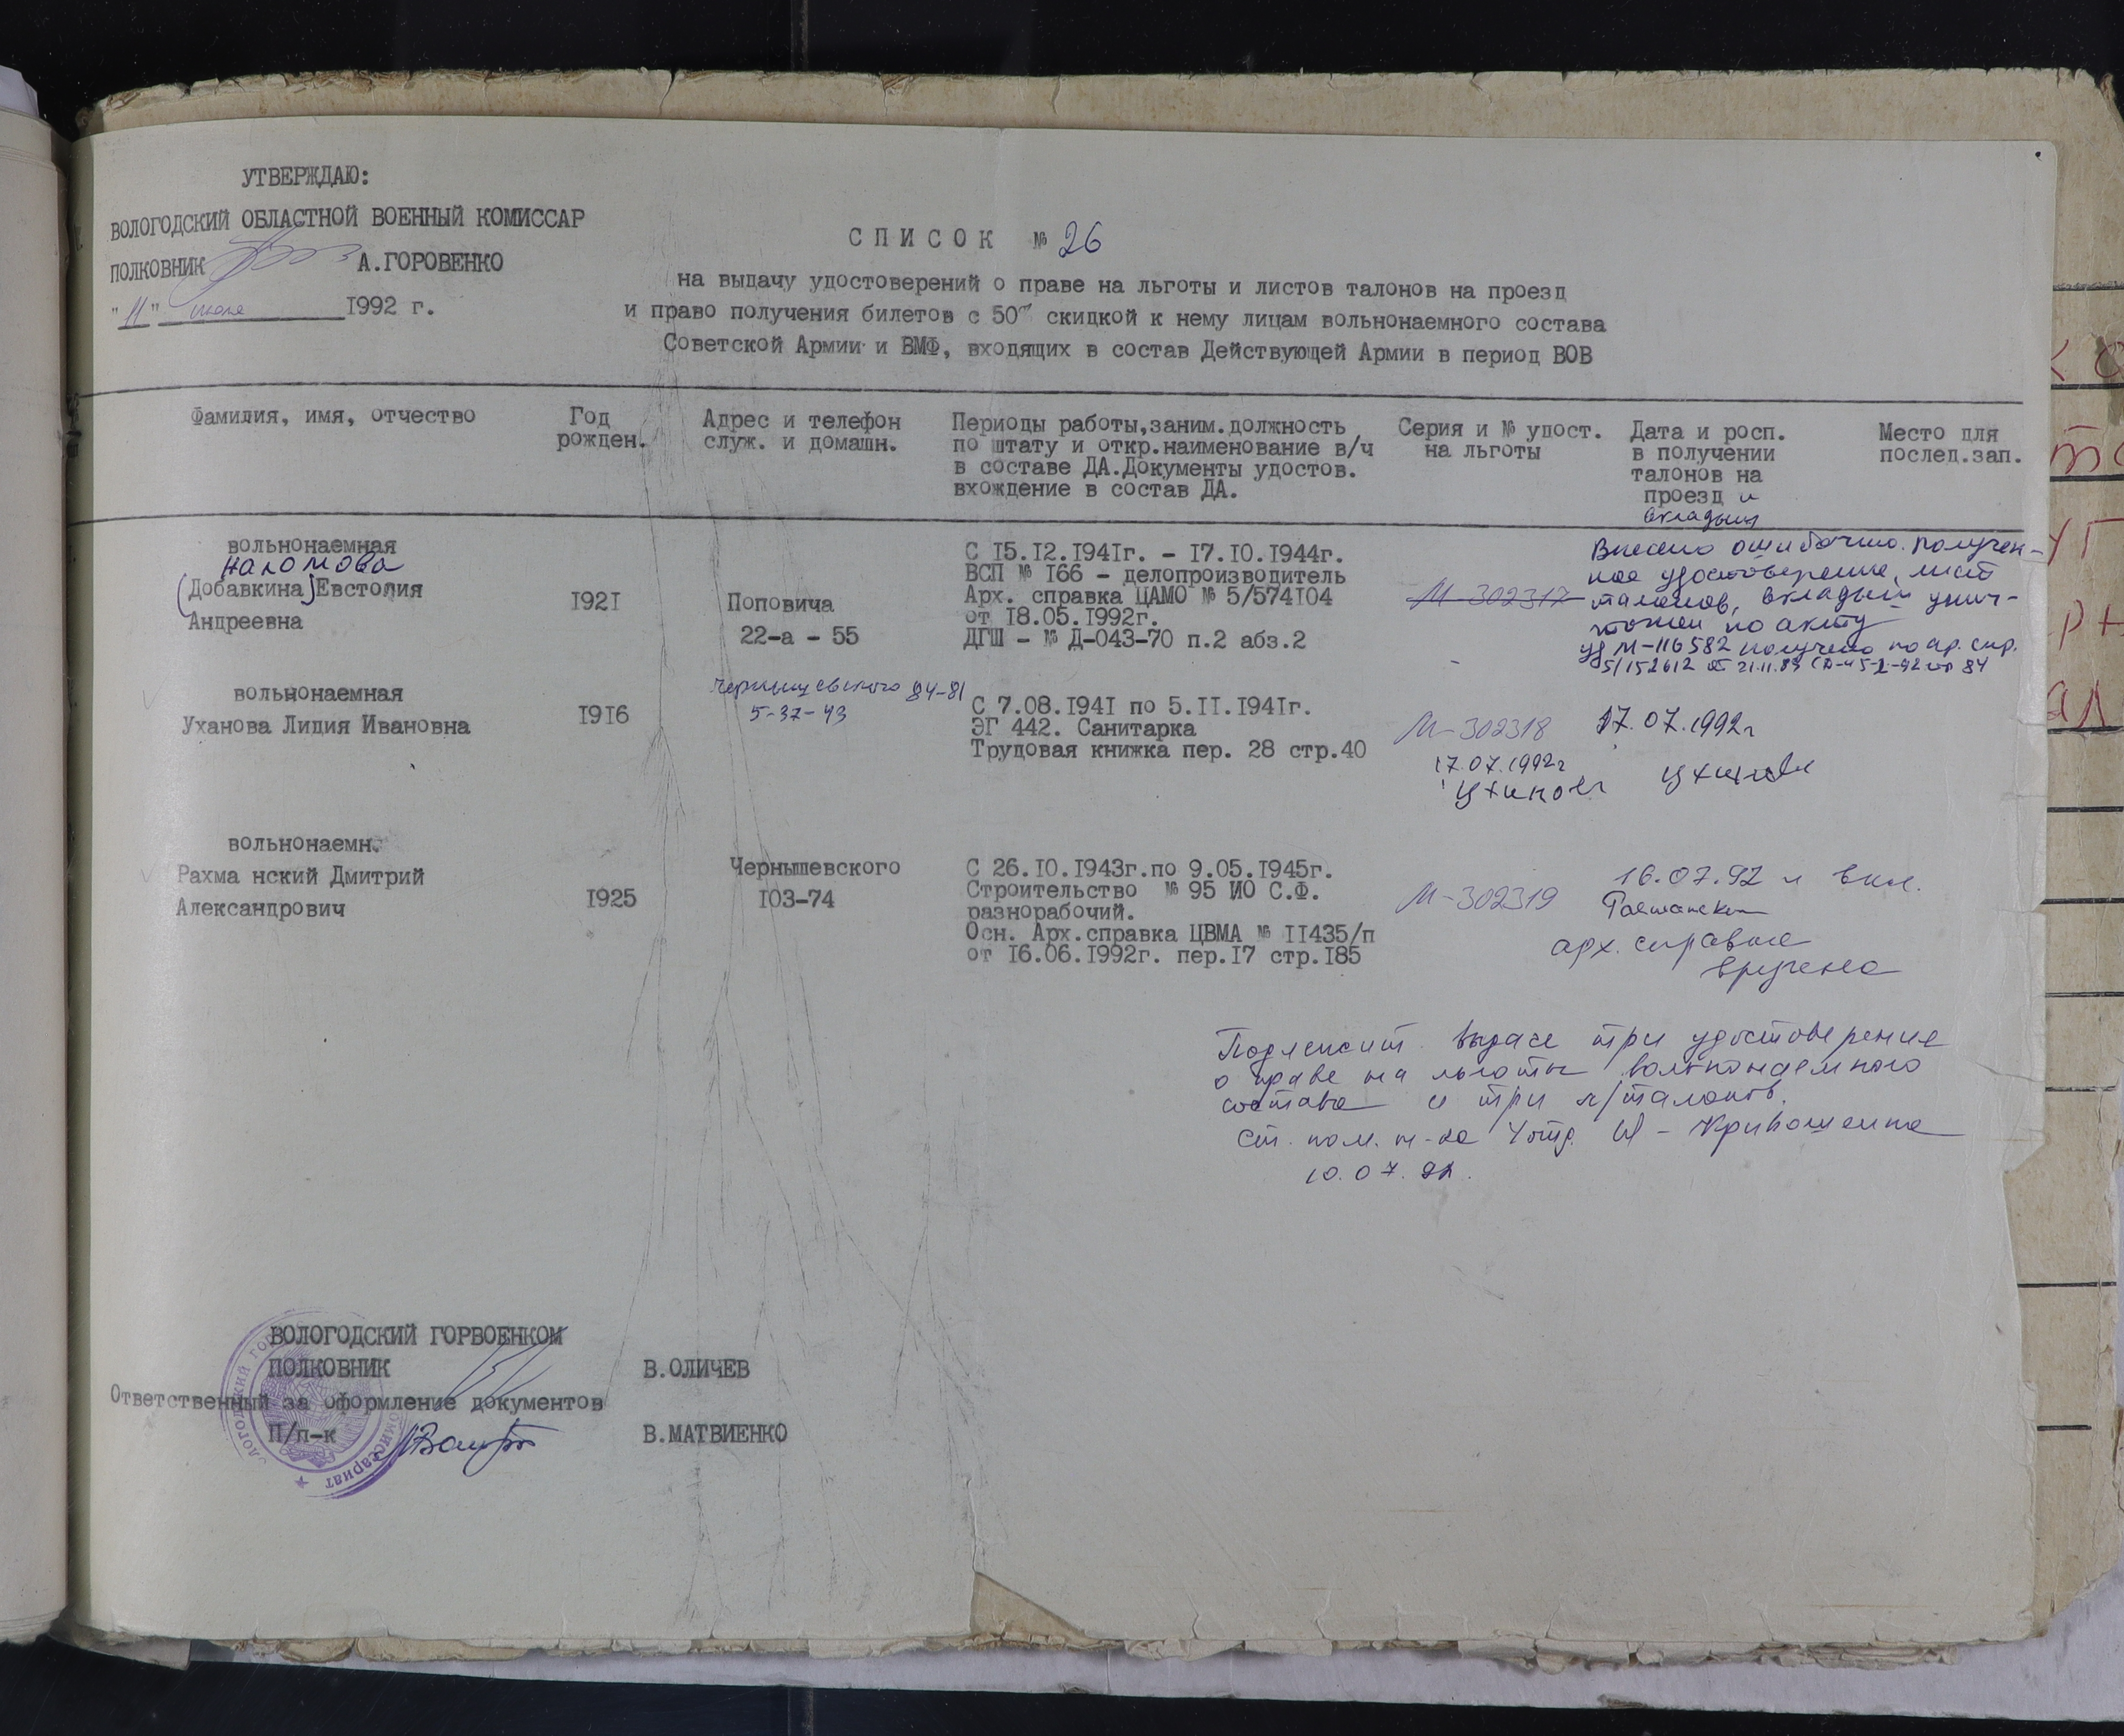 УТВЕРЖДАЮ:
ВОЛОГОДСКИЙ ОБЛАСТНОЙ ВОЕННЫЙ КОМИССАР
ПОЛКОВНИК А.ГОРОВЕНКО
"11" июля 1992 г.
СПИСОК № 26
на выдачу удостоверений о праве на льготы и листов талонов на проезд
и право получения билетов с 50% скидкой к нему лицам вольнонаемного состава
Советской Армии и ВМФ, входящих в состав Действующей Армии в период ВОВ
Фамилия, имя, отчество
Год
рожден.
Адрес и телефон
служ. и домашн.
Периоды работы,заним.должность
по штату и откр.наименование в/ч
в составе ДА.Документы удостов.
вхождение в состав ДА.
Серия и № удост.
на льготы
Дата и росп.
в получении
талонов на
проезд и
вкладыш
Место для
послед.зап.
вольнонаемная
(Добавкина) Евстолия
Андреевна
1921
Поповича
22-а - 55
С 15.12.1941г. - 17.10.1944г.
ВСП № 166 - делопроизводитель
Арх. справка ЦАМО № 5/574104
от 18.05.1992г.
ДГШ - № Д-043-70 п.2 абз.2
М-302317
Внесено ошибочно. Получен-
ное удостоверение, лист
талонов, вкладыш унич-
тожен по акту
уд М-116582 получено по ар. спр.
5/152612 от 21.11.89
вольнонаемная
Уханова Лидия Ивановна
1916
Чернышевского 84-81
5-37-43
С 7.08.1941 по 5.11.1941г.
ЭГ 442. Санитарка
Трудовая книжка пер. 28 стр.40
М-302318
17.07.1992г
Уханова
17.07.1992г
Уханова
вольнонаемн.
Рахма нский Дмитрий
Александрович
1925
Чернышевского
103-74
С 26.10.1943г.по 9.05.1945г.
Строительство № 95 ИО С.Ф.
разнорабочий.
Осн. Арх.справка ЦВМА № 11435/п
от 16.06.1992г. пер.17 стр.185
М-302319
16.07.92 и вкл.
арх. справка
вручена
Подлежит выдаче три удостоверения
о праве на льготы вольнонаемного
состава и три л/талонов.
Ст. пом. н-ка 4 отд. Кривошеина
10.07.92.
ВОЛОГОДСКИЙ ГОРВОЕНКОМ
ПОЛКОВНИК В.ОЛИЧЕВ
Ответственный за оформление документов
П/п-к В.МАТВИЕНКО